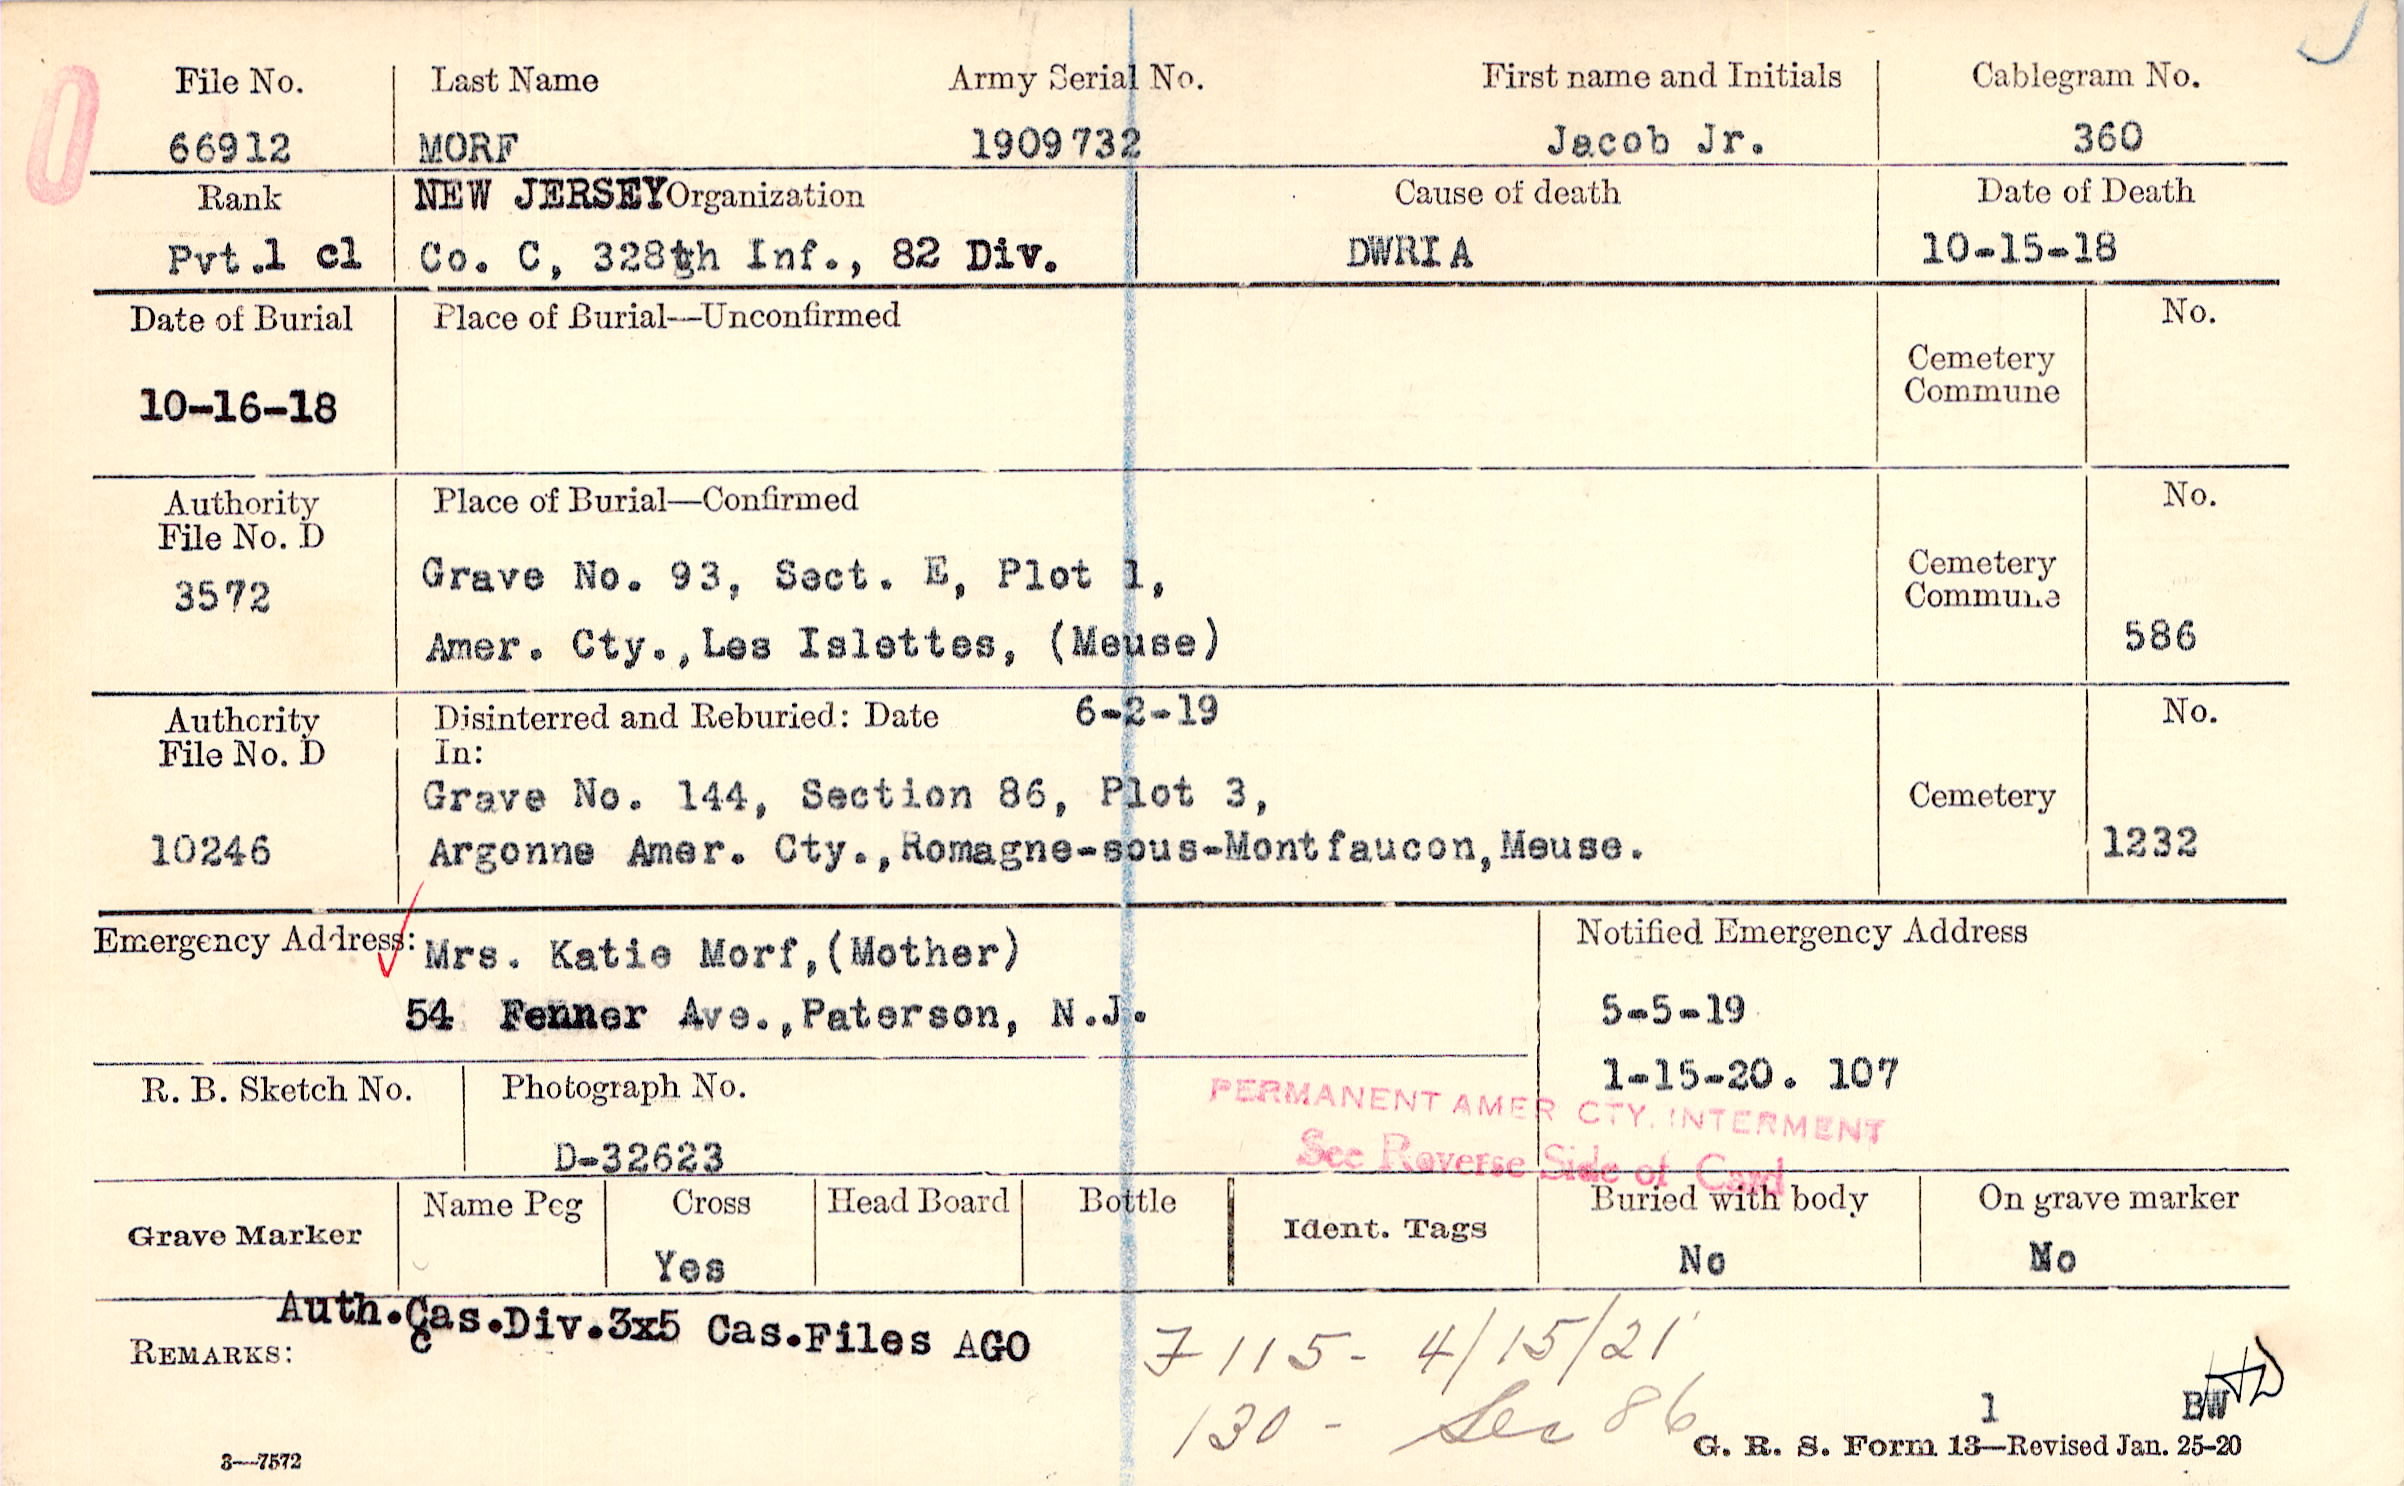 File No. Last Name Army Serial No. First name and Initials Cablegram No.
66912 MORF 1909732 Jacob Jr. 360
Rank NEW JERSEY Organization Cause of death Date of Death
Pvt.1 cl Co. C, 328th Inf., 82 Div. DWRIA 10-15-18
Date of Burial Place of Burial—Unconfirmed No.
Cemetery
Commune
10-16-18
Authority Place of Burial—Confirmed No.
File No. D
3572 Grave No. 93, Sect. E, Plot 1, Cemetery
Commune
Amer. Cty., Les Islettes, (Meuse) 586
Authority Disinterred and Reburied: Date 6-2-19 No.
File No. D In:
Grave No. 144, Section 86, Plot 3, Cemetery
10246 Argonne Amer. Cty., Romagne-sous-Montfaucon, Meuse. 1232
Emergency Address: Mrs. Katie Morf, (Mother) Notified Emergency Address
54 Fenner Ave., Paterson, N.J. 5-5-19
1-15-20. 107
R. B. Sketch No. Photograph No.
PERMANENT AMER CTY. INTERMENT
D-32623 See Reverse Side of Card
Grave Marker Name Peg Cross Head Board Bottle Ident. Tags Buried with body On grave marker
Yes No No
Auth.Cas.Div.3x5 Cas.Files AGO
c
REMARKS: 7115- 4/15/21
130 - Sec 86
1 BW HD
3—7572 G. R. S. Form 13—Revised Jan. 25-20